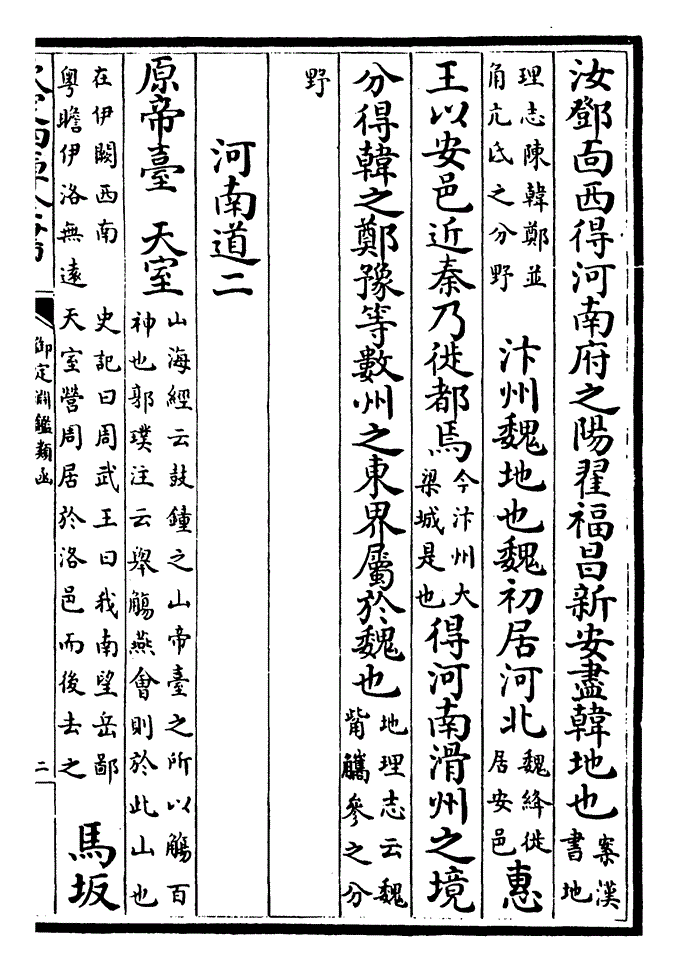 汝鄧靣西得河南府之陽翟福昌新安盡韓地也案漢書地
理志陳韓鄭並角亢氐之分野 汴州魏地也魏初居河北魏絳徙居安邑惠
王以安邑近秦乃徙都焉今汴州大梁城是也得河南滑州之境
分得韓之鄭豫等數州之東界屬於魏也地理志云魏觜觿參之分
野
河南道二
原帝臺 天室山海經云鼓鐘之山帝臺之所以觴百神也郭璞注云舉觴燕會則於此山也
在伊闕西南 史記曰周武王曰我南望岳鄙粵瞻伊洛無遠天室營周居於洛邑而後去之 馬坂
御定淵鑑類函
二